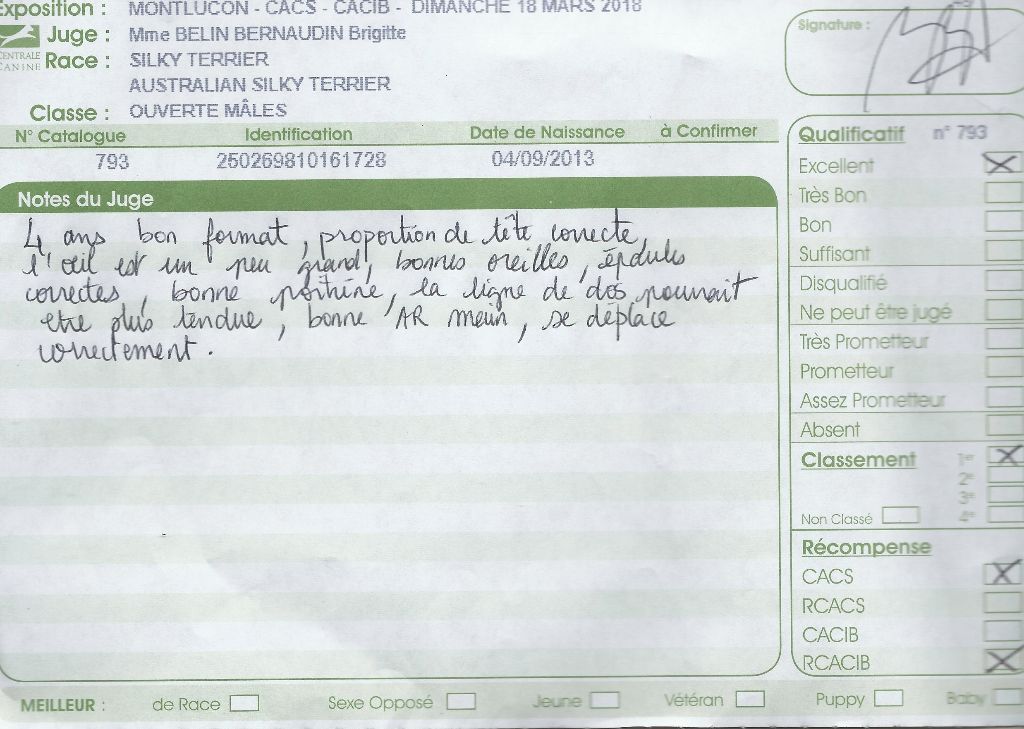 Exposition : MONTLUCON - CACS - CACIB - DIMANCHE 18 MARS 2018
Juge : Mme BELIN BERNAUDIN Brigitte
CENTRALE CANINE
Race : SILKY TERRIER
AUSTRALIAN SILKY TERRIER
Classe : OUVERTE MÂLES
Signature :
N° Catalogue Identification Date de Naissance à Confirmer
793 250269810161728 04/09/2013
Notes du Juge
4 ans bon format, proportion de tête correcte,
l'œil est un peu grand, bonnes oreilles, épaules
correctes, bonne poitrine, la ligne de dos pourrait
etre plus tendue, bonne AR main, se déplace
correctement.
Qualificatif n° 793
Excellent
Très Bon
Bon
Suffisant
Disqualifié
Ne peut être jugé
Très Prometteur
Prometteur
Assez Prometteur
Absent
Classement 1er
2e
3e
Non Classé 4e
Récompense
CACS
RCACS
CACIB
RCACIB
MEILLEUR : de Race Sexe Opposé Jeune Vétéran Puppy Baby